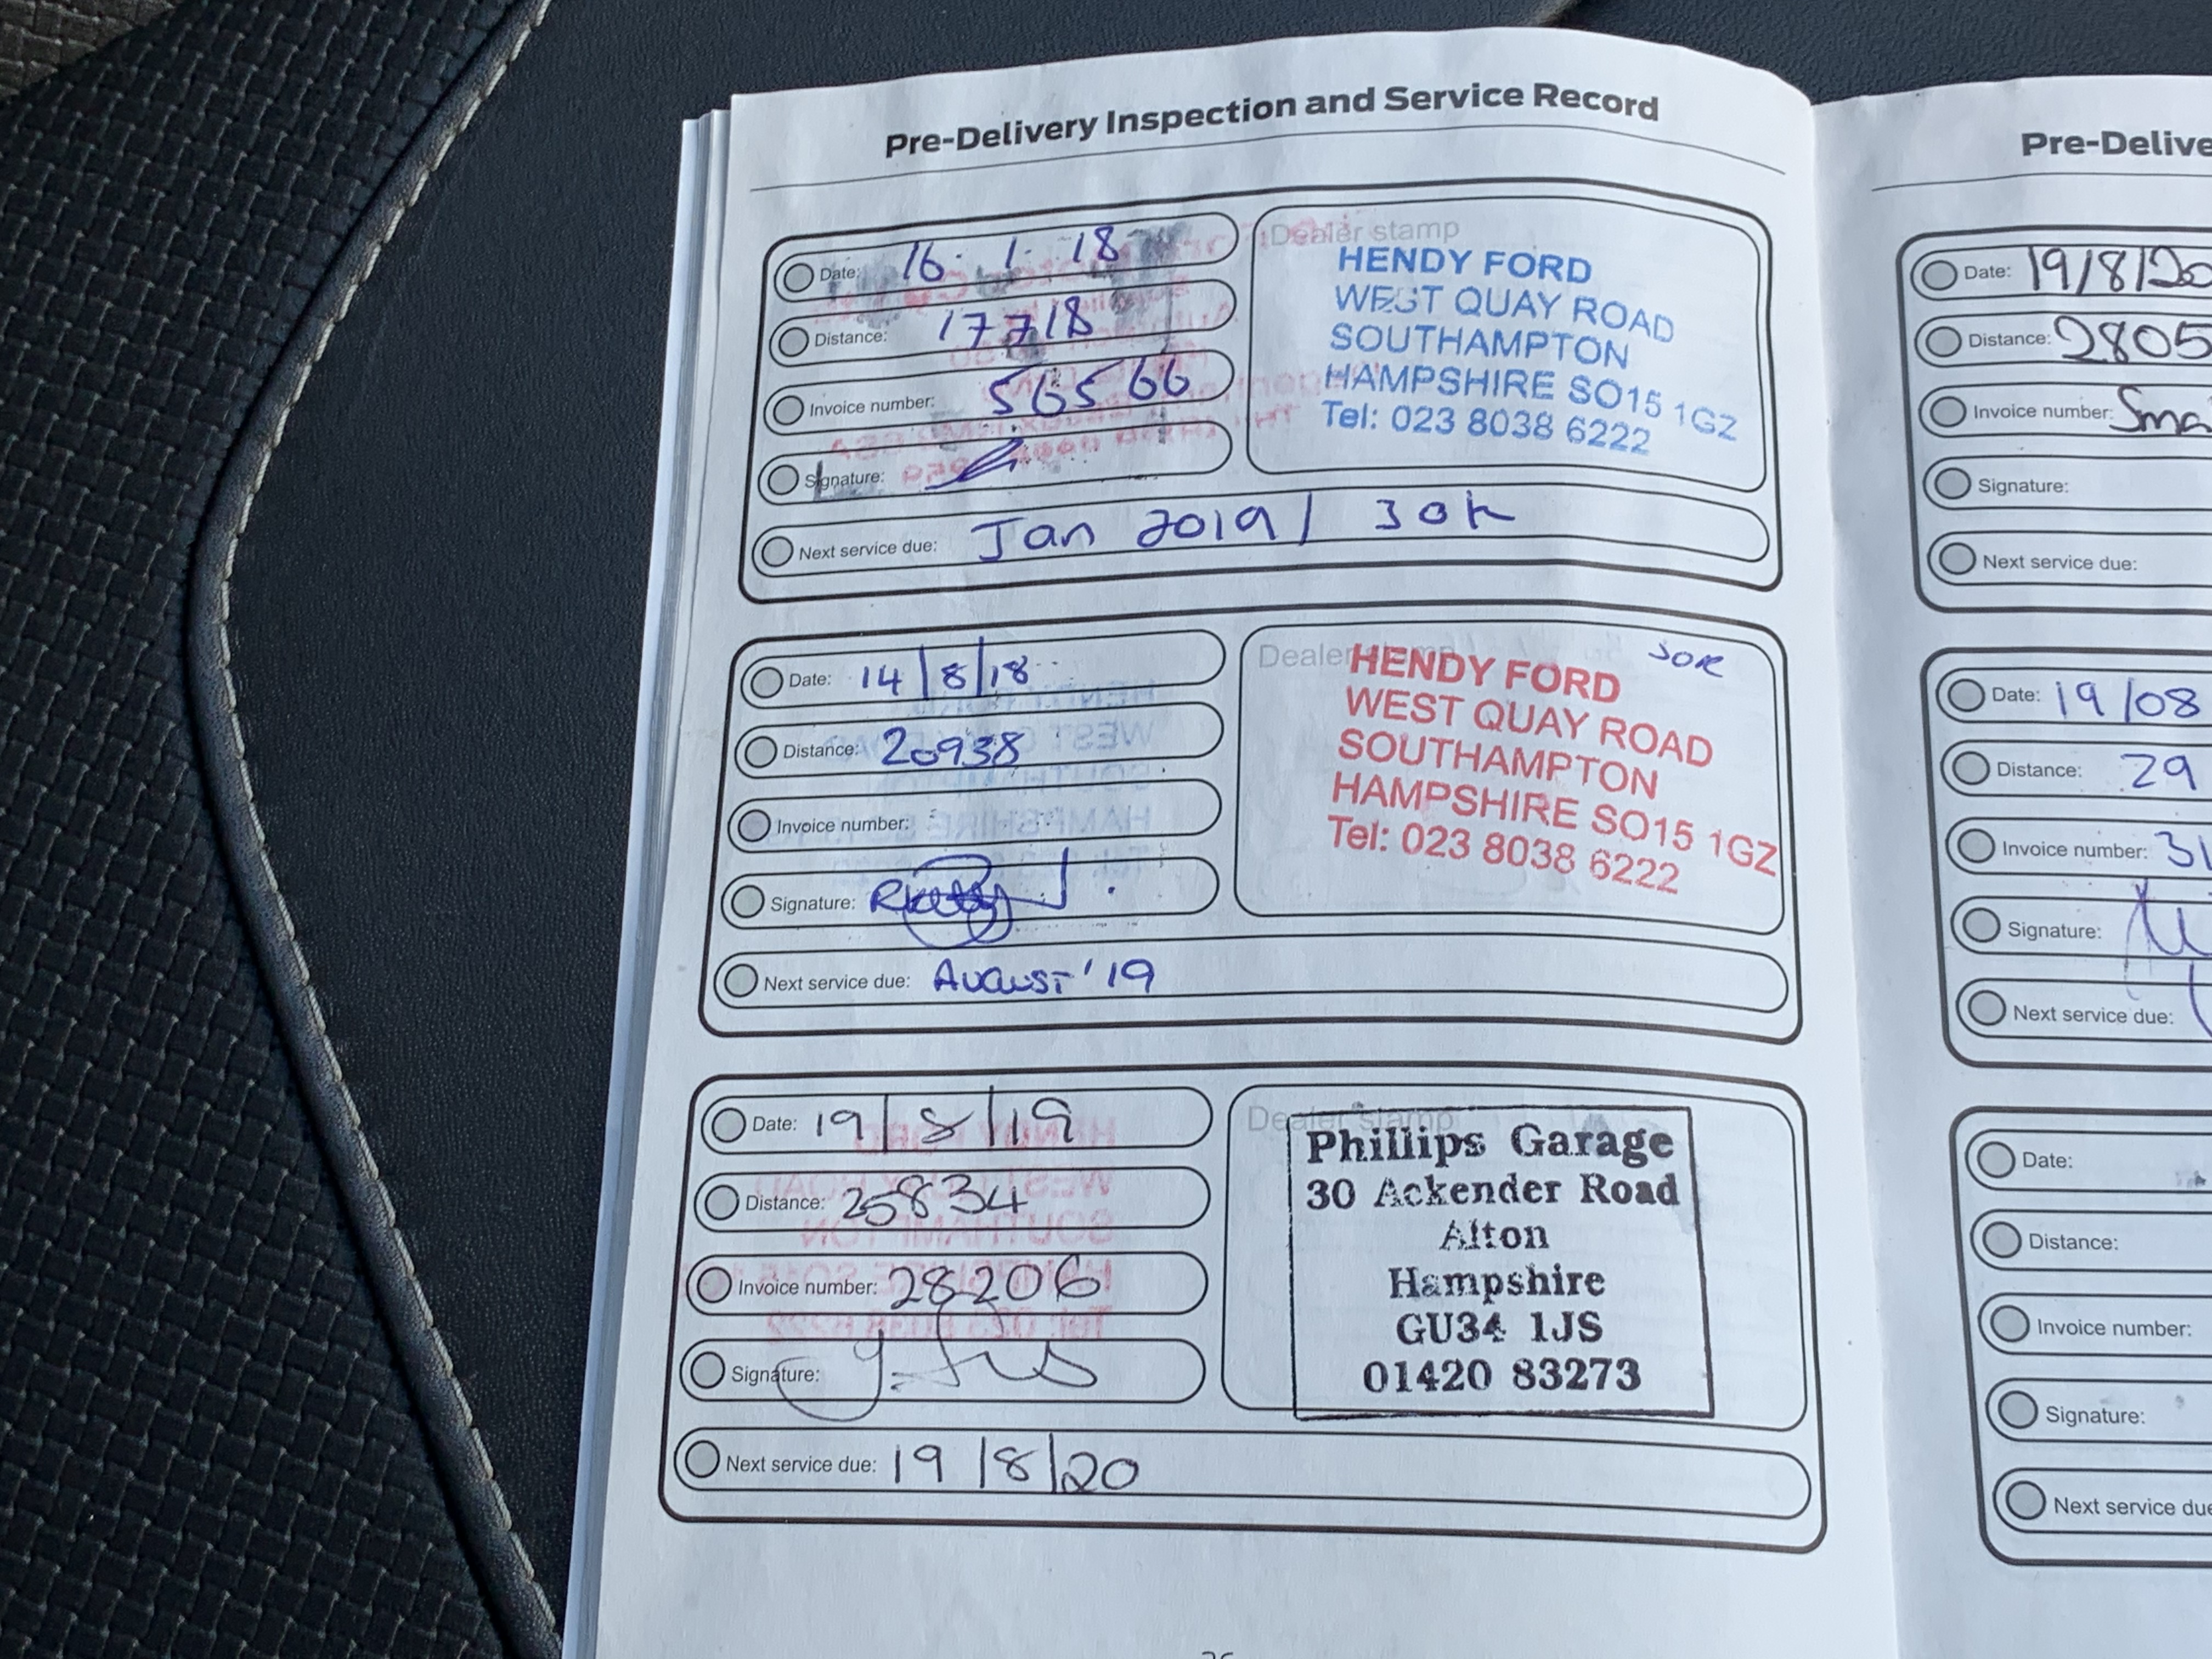 Pre-Delivery Inspection and Service Record
Date: 16. 1. 18
Distance: 17718
Invoice number: 56566
Signature:
Next service due: Jan 2019 / 30k
Dealer stamp
HENDY FORD
WEST QUAY ROAD
SOUTHAMPTON
HAMPSHIRE SO15 1GZ
Tel: 023 8038 6222
Date: 14/8/18
Distance: 20938
Invoice number:
Signature:
Next service due: AUGUST '19
Dealer
HENDY FORD
WEST QUAY ROAD
SOUTHAMPTON
HAMPSHIRE SO15 1GZ
Tel: 023 8038 6222
Date: 19/8/19
Distance: 25834
Invoice number: 28206
Signature:
Next service due: 19/8/20
Dealer stamp
Phillips Garage
30 Ackender Road
Alton
Hampshire
GU34 1JS
01420 83273
Pre-Delive
Date: 19/8/20
Distance: 2805
Invoice number: Sma
Signature:
Next service due:
Date: 19/08
Distance: 29
Invoice number: 31
Signature:
Next service due:
Date:
Distance:
Invoice number:
Signature:
Next service due